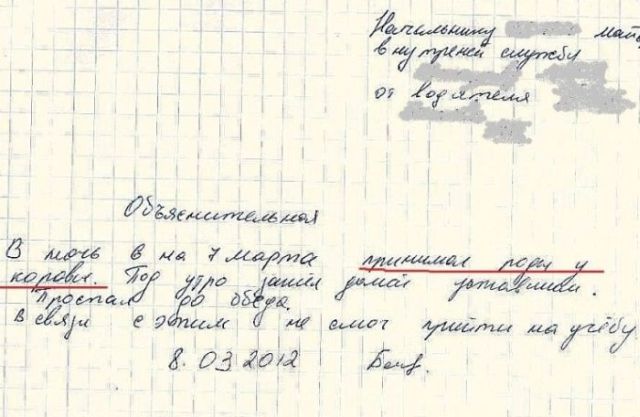 Начальнику май
внутреней службы
от водятеля
Объяснительная
В ночь в на 7 марта принимал роды у
коровы. Под утро зашёл домой уставший.
Проспал до обеда.
В связи с этим не смог прийти на учёбу
8.03.2012